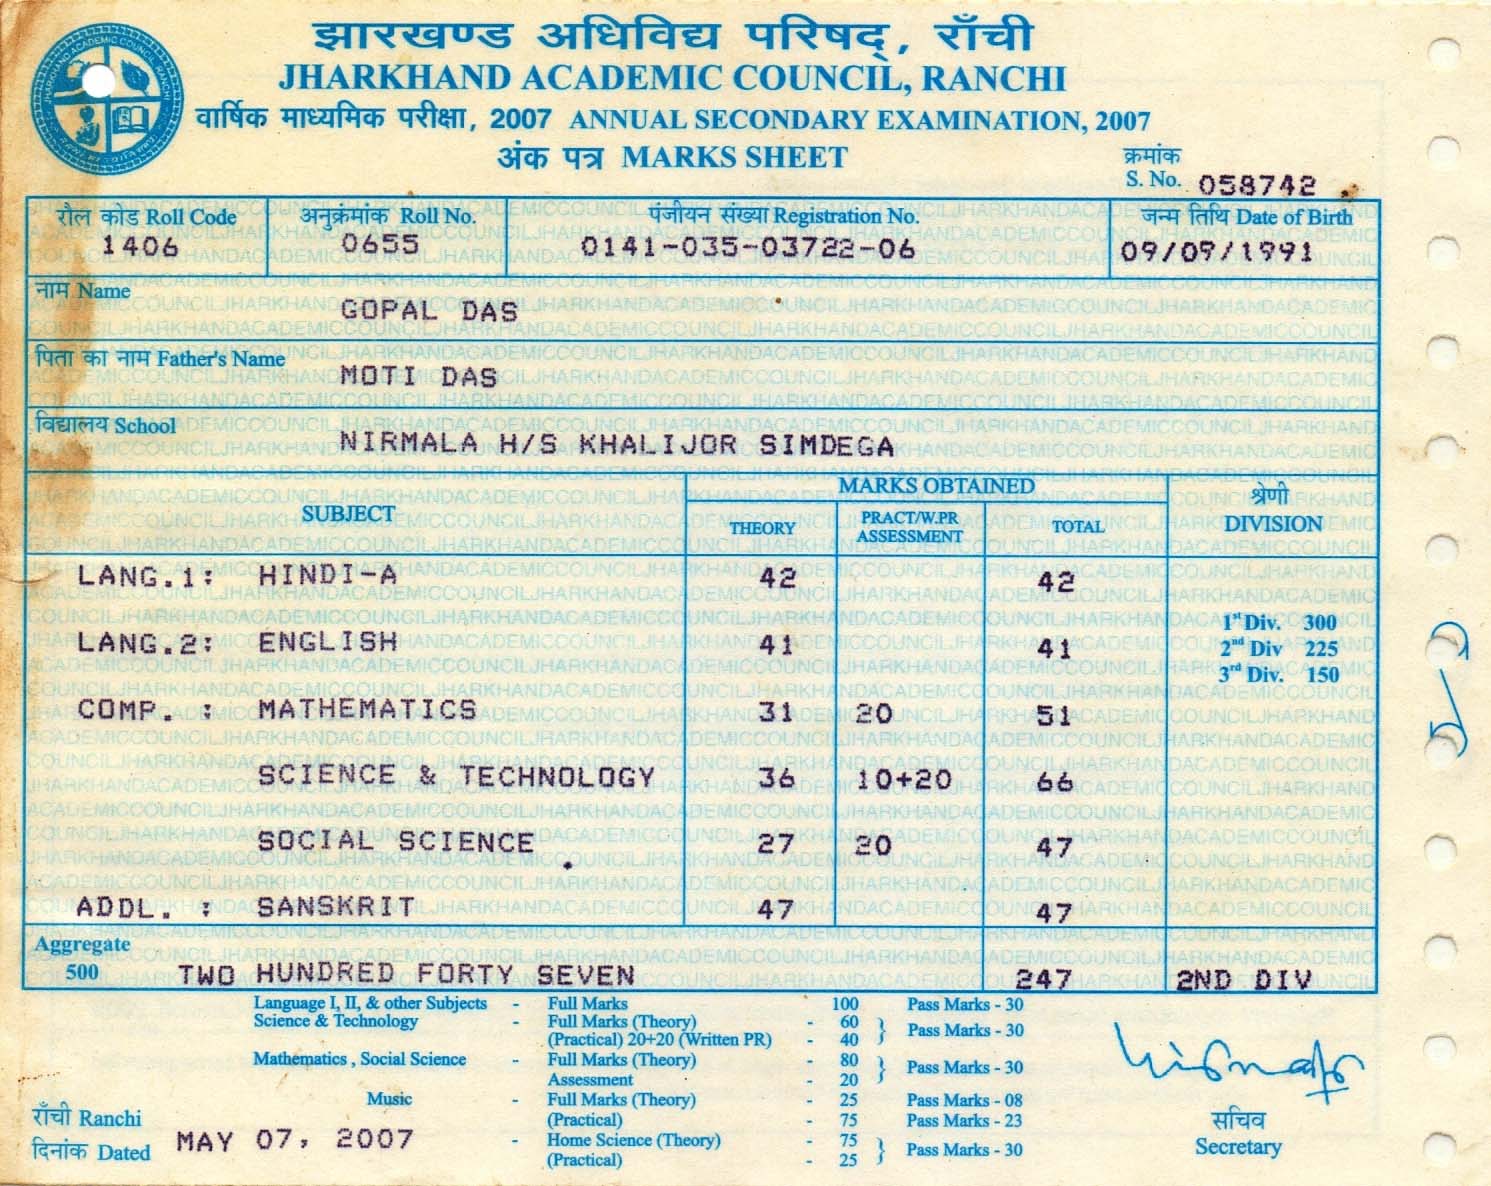 झारखण्ड अधिविद्य परिषद्, राँची
JHARKHAND ACADEMIC COUNCIL, RANCHI
वार्षिक माध्यमिक परीक्षा, 2007 ANNUAL SECONDARY EXAMINATION, 2007
अंक पत्र MARKS SHEET
क्रमांक
S. No. 058742
रौल कोड Roll Code अनुक्रमांक Roll No. पंजीयन संख्या Registration No. जन्म तिथि Date of Birth
1406 0655 0141-035-03722-06 09/09/1991
नाम Name
GOPAL DAS
पिता का नाम Father's Name
MOTI DAS
विद्यालय School
NIRMALA H/S KHALIJOR SIMDEGA
SUBJECT MARKS OBTAINED श्रेणी
THEORY PRACT/W.PR ASSESSMENT TOTAL DIVISION
LANG.1: HINDI-A 42 42
1st Div. 300
LANG.2: ENGLISH 41 41 2nd Div 225
3rd Div. 150
COMP. : MATHEMATICS 31 20 51
SCIENCE & TECHNOLOGY 36 10+20 66
SOCIAL SCIENCE 27 20 47
ADDL. : SANSKRIT 47 47
Aggregate
500 TWO HUNDRED FORTY SEVEN 247 2ND DIV
Language I, II, & other Subjects - Full Marks 100 Pass Marks - 30
Science & Technology - Full Marks (Theory) - 60
(Practical) 20+20 (Written PR) - 40 } Pass Marks - 30
Mathematics , Social Science - Full Marks (Theory) - 80
Assessment - 20 } Pass Marks - 30
Music - Full Marks (Theory) - 25 Pass Marks - 08
(Practical) - 75 Pass Marks - 23
- Home Science (Theory) - 75
(Practical) - 25 } Pass Marks - 30
राँची Ranchi
दिनांक Dated MAY 07, 2007
सचिव
Secretary